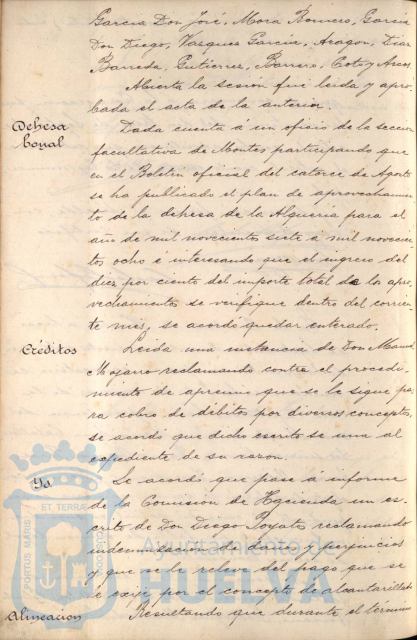 Garcia Don José, Mora Romero, Garcia
Don Diego, Vasques Garcia, Aragon, Diaz
Barreda, Gutierrez, Barrero, Coto y Arcos.
Abierta la sesion fué leida y apro-
bada el acta de la anterior.
Dehesa
boyal
Dada cuenta á un oficio de la seccion
facultativa de Montes participando que
en el Boletin oficial del catorce de Agosto
se ha publicado el plan de aprovechamien-
to de la dehesa de la Alqueria para el
año de mil novecientos siete á mil novecien-
tos ocho é interesando que el ingreso del
diez por ciento del importe total de los apro-
vechamientos se verifique dentro del corrien-
te mes, se acordó quedar enterado.
Créditos
Leida una instancia de Don Manuel
Mojarro reclamando contra el procedi-
miento de apremio que se le sigue pa-
ra cobro de débitos por diversos conceptos,
se acordó que dicho escrito se una al
expediente de su razon.
Yd
Se acordó que pase á informe
de la Comision de Hacienda un es-
crito de Don Diego Poyato reclamando
indemnizacion de daños y perjuicios
y que se le releve del pago que se
le exije por el concepto de alcantarillado
Alineacion
Resultando que durante el termino
PORTUS MARIS ET TERRAE CUSTODIA
Ayuntamiento de
HUELVA